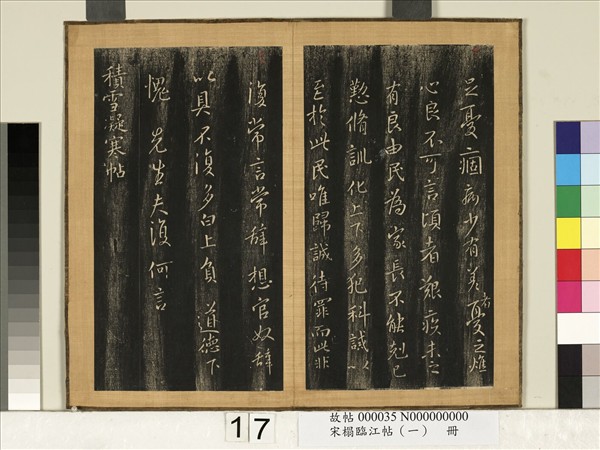 足憂痼病少有差有憂之燋
心良不可言頃者艱疾未之
有良由民為家長不能剋己
懃脩訓化上下多犯科誡以
至於此民唯歸誠待罪而此非
復常言常辞想官奴辞
以具不復多白上負道德下
愧先生夫復何言
積雪凝寒帖
17
故帖 000035 N000000000
宋搨臨江帖（一） 冊